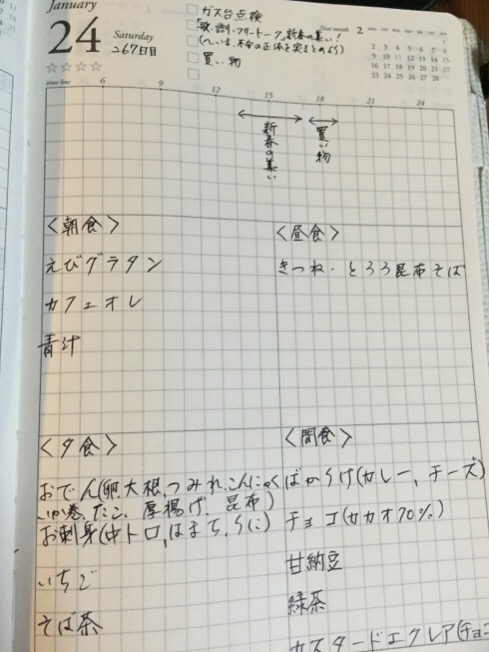 January
24
Saturday
267日目
☆☆☆☆
ガス台点検
「歌・詩・フリートーク」新春の集い!
買い物
Next month 2
1
2 3 4 5 6 7 8
9 10 11 12 13 14 15
16 17 18 19 20 21 22
23 24 25 26 27 28
time line 6 9 12 15 18 21 24
新春の集い
買い物
<朝食>
えびグラタン
カフェオレ
青汁
<昼食>
きつね・とろろ昆布そば
<夕食>
おでん(卵、大根、つみれ、こんにゃく
いか巻、たこ、厚揚げ、昆布)
お刺身(中トロ、はまち、うに)
いちご
そば茶
<間食>
ばかうけ(カレー、チーズ)
チョコ(カカオ70%)
甘納豆
緑茶
カスタードエクレア(チョコ